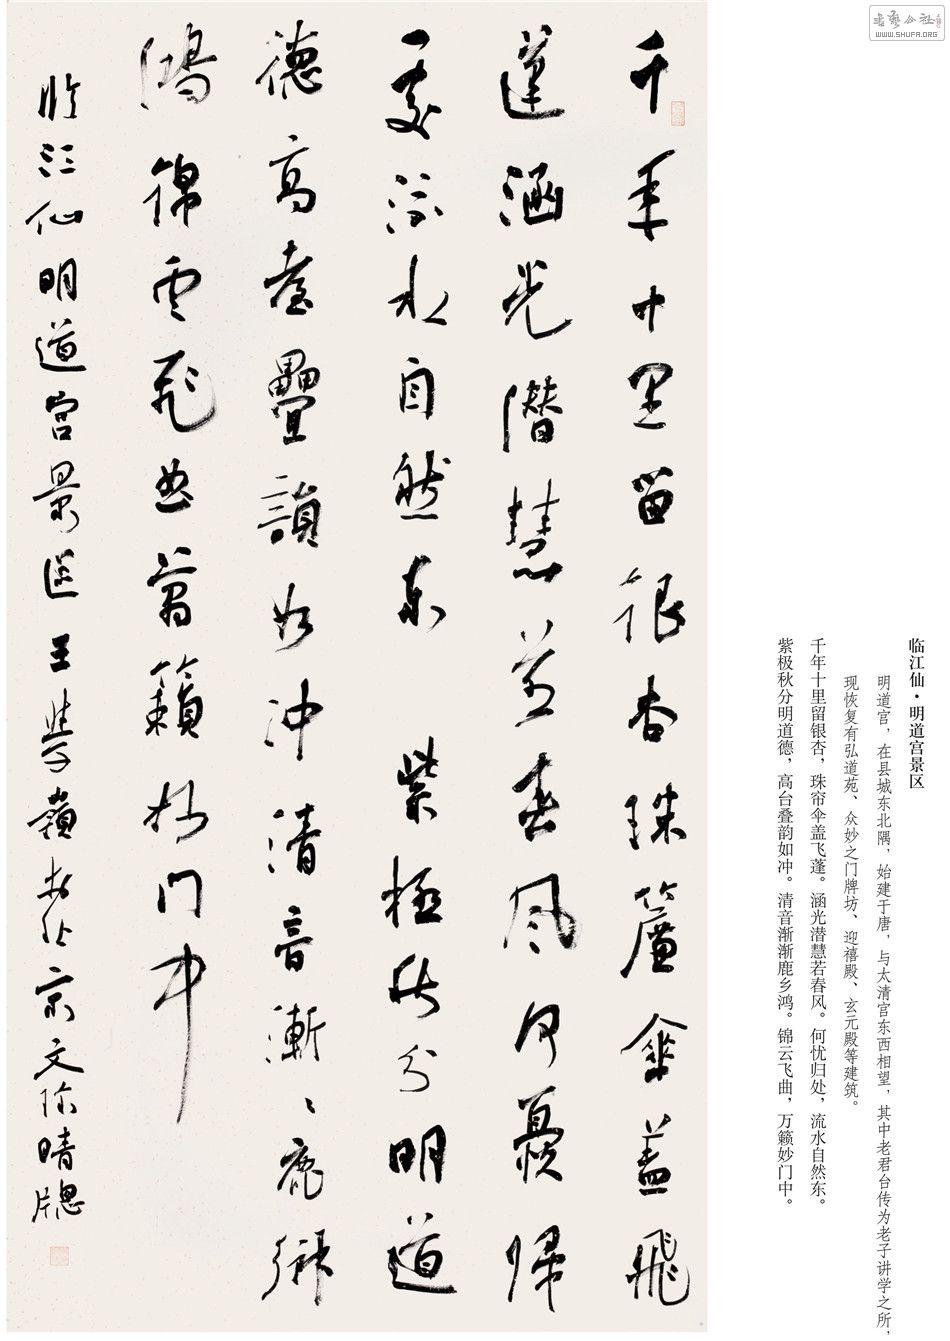 书艺公社
WWW.SHUFA.ORG
临江仙·明道宫景区
明道宫，在县城东北隅，始建于唐，与太清宫东西相望，其中老君台传为老子讲学之所，
现恢复有弘道苑、众妙之门牌坊、迎禧殿、玄元殿等建筑。
千年十里留银杏，珠帘伞盖飞蓬。涵光潜慧若春风。何忧归处，流水自然东。
紫极秋分明道德，高台叠韵如冲。清音渐渐鹿乡鸿。锦云飞曲，万籁妙门中。
千年十里留银杏珠簾傘蓋飛
蓬涵光潛慧若春风何憂歸
處流水自然東 紫極秋分明道
德高臺疊韻如冲清音漸〻鹿鄉
鴻錦雲飛曲萬籟妙门中
臨江仙明道宫景區 王學嶺書於京文晴牕